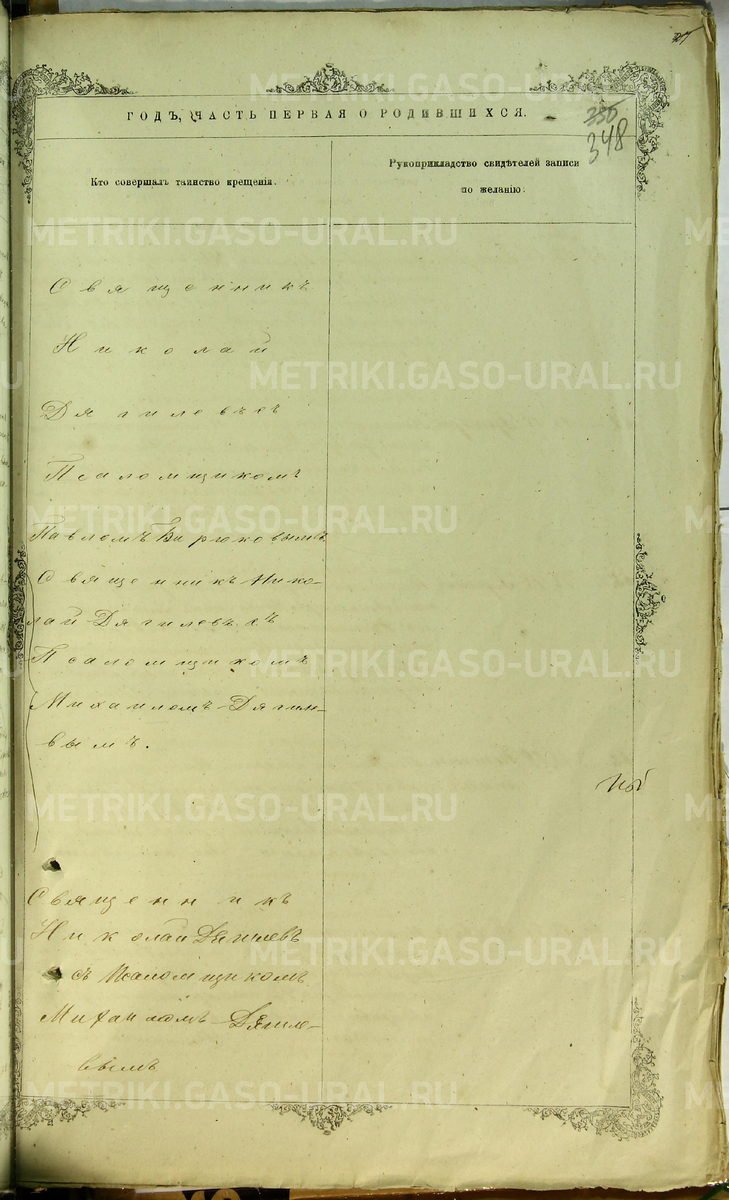 27
ГОДЪ, ЧАСТЬ ПЕРВАЯ О РОДИВШИХСЯ.
335
348
Кто совершалъ таинство крещенія.
Рукоприкладство свидѣтелей записи
по желанію.
Священникъ
Николай
Дягилевъ съ
Псаломщикомъ
Павломъ Бирюковымъ
Священникъ Нико-
лай Дягилевъ съ
Псаломщикомъ
Михаиломъ Дягиле-
вымъ.
Священникъ
Николай Дягилевъ
съ Псаломщикомъ
Михаиломъ Дягиле-
вымъ
METRIKI.GASO-URAL.RU